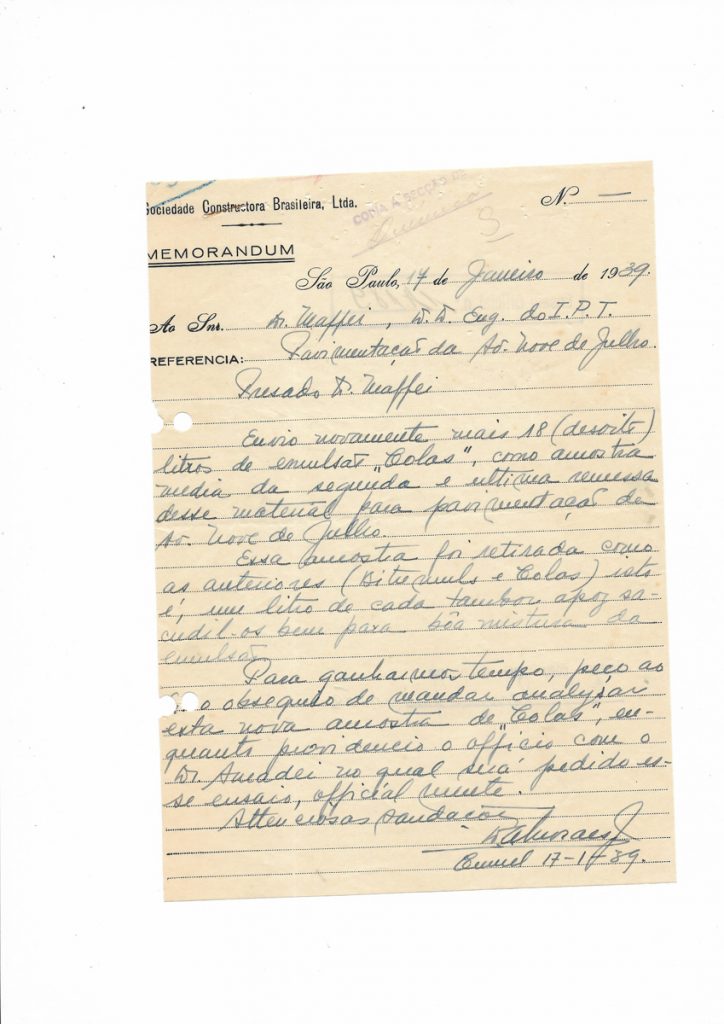 Sociedade Constructora Brasileira, Ltda.
COPIA Á SECÇÃO DE
N. —
MEMORANDUM
São Paulo, 17 de Janeiro de 1939.
Ao Snr. Dr. Maffei, D. D. Eng. do I. P. T.
REFERENCIA: Pavimentação da Av. Nove de Julho.
Presado Dr. Maffei
Envio novamente mais 18 (desoito)
litros de emulsão "Colas", como amostra
media da segunda e ultima remessa
desse material para pavimentação da
Av. Nove de Julho.
Essa amostra foi retirada como
as anteriores (Bitumuls e Colas) isto
é, um litro de cada tambor apoz sa-
cudil-os bem para bôa mistura da
emulsão
Para ganharmos tempo, peço ao
o obsequio de mandar analysar
esta nova amostra de "Colas", en-
quanto providencio o officio com o
Dr. Amadei no qual será pedido es-
se ensaio, officialmente.
Attenciosas saudações
17-1-39.